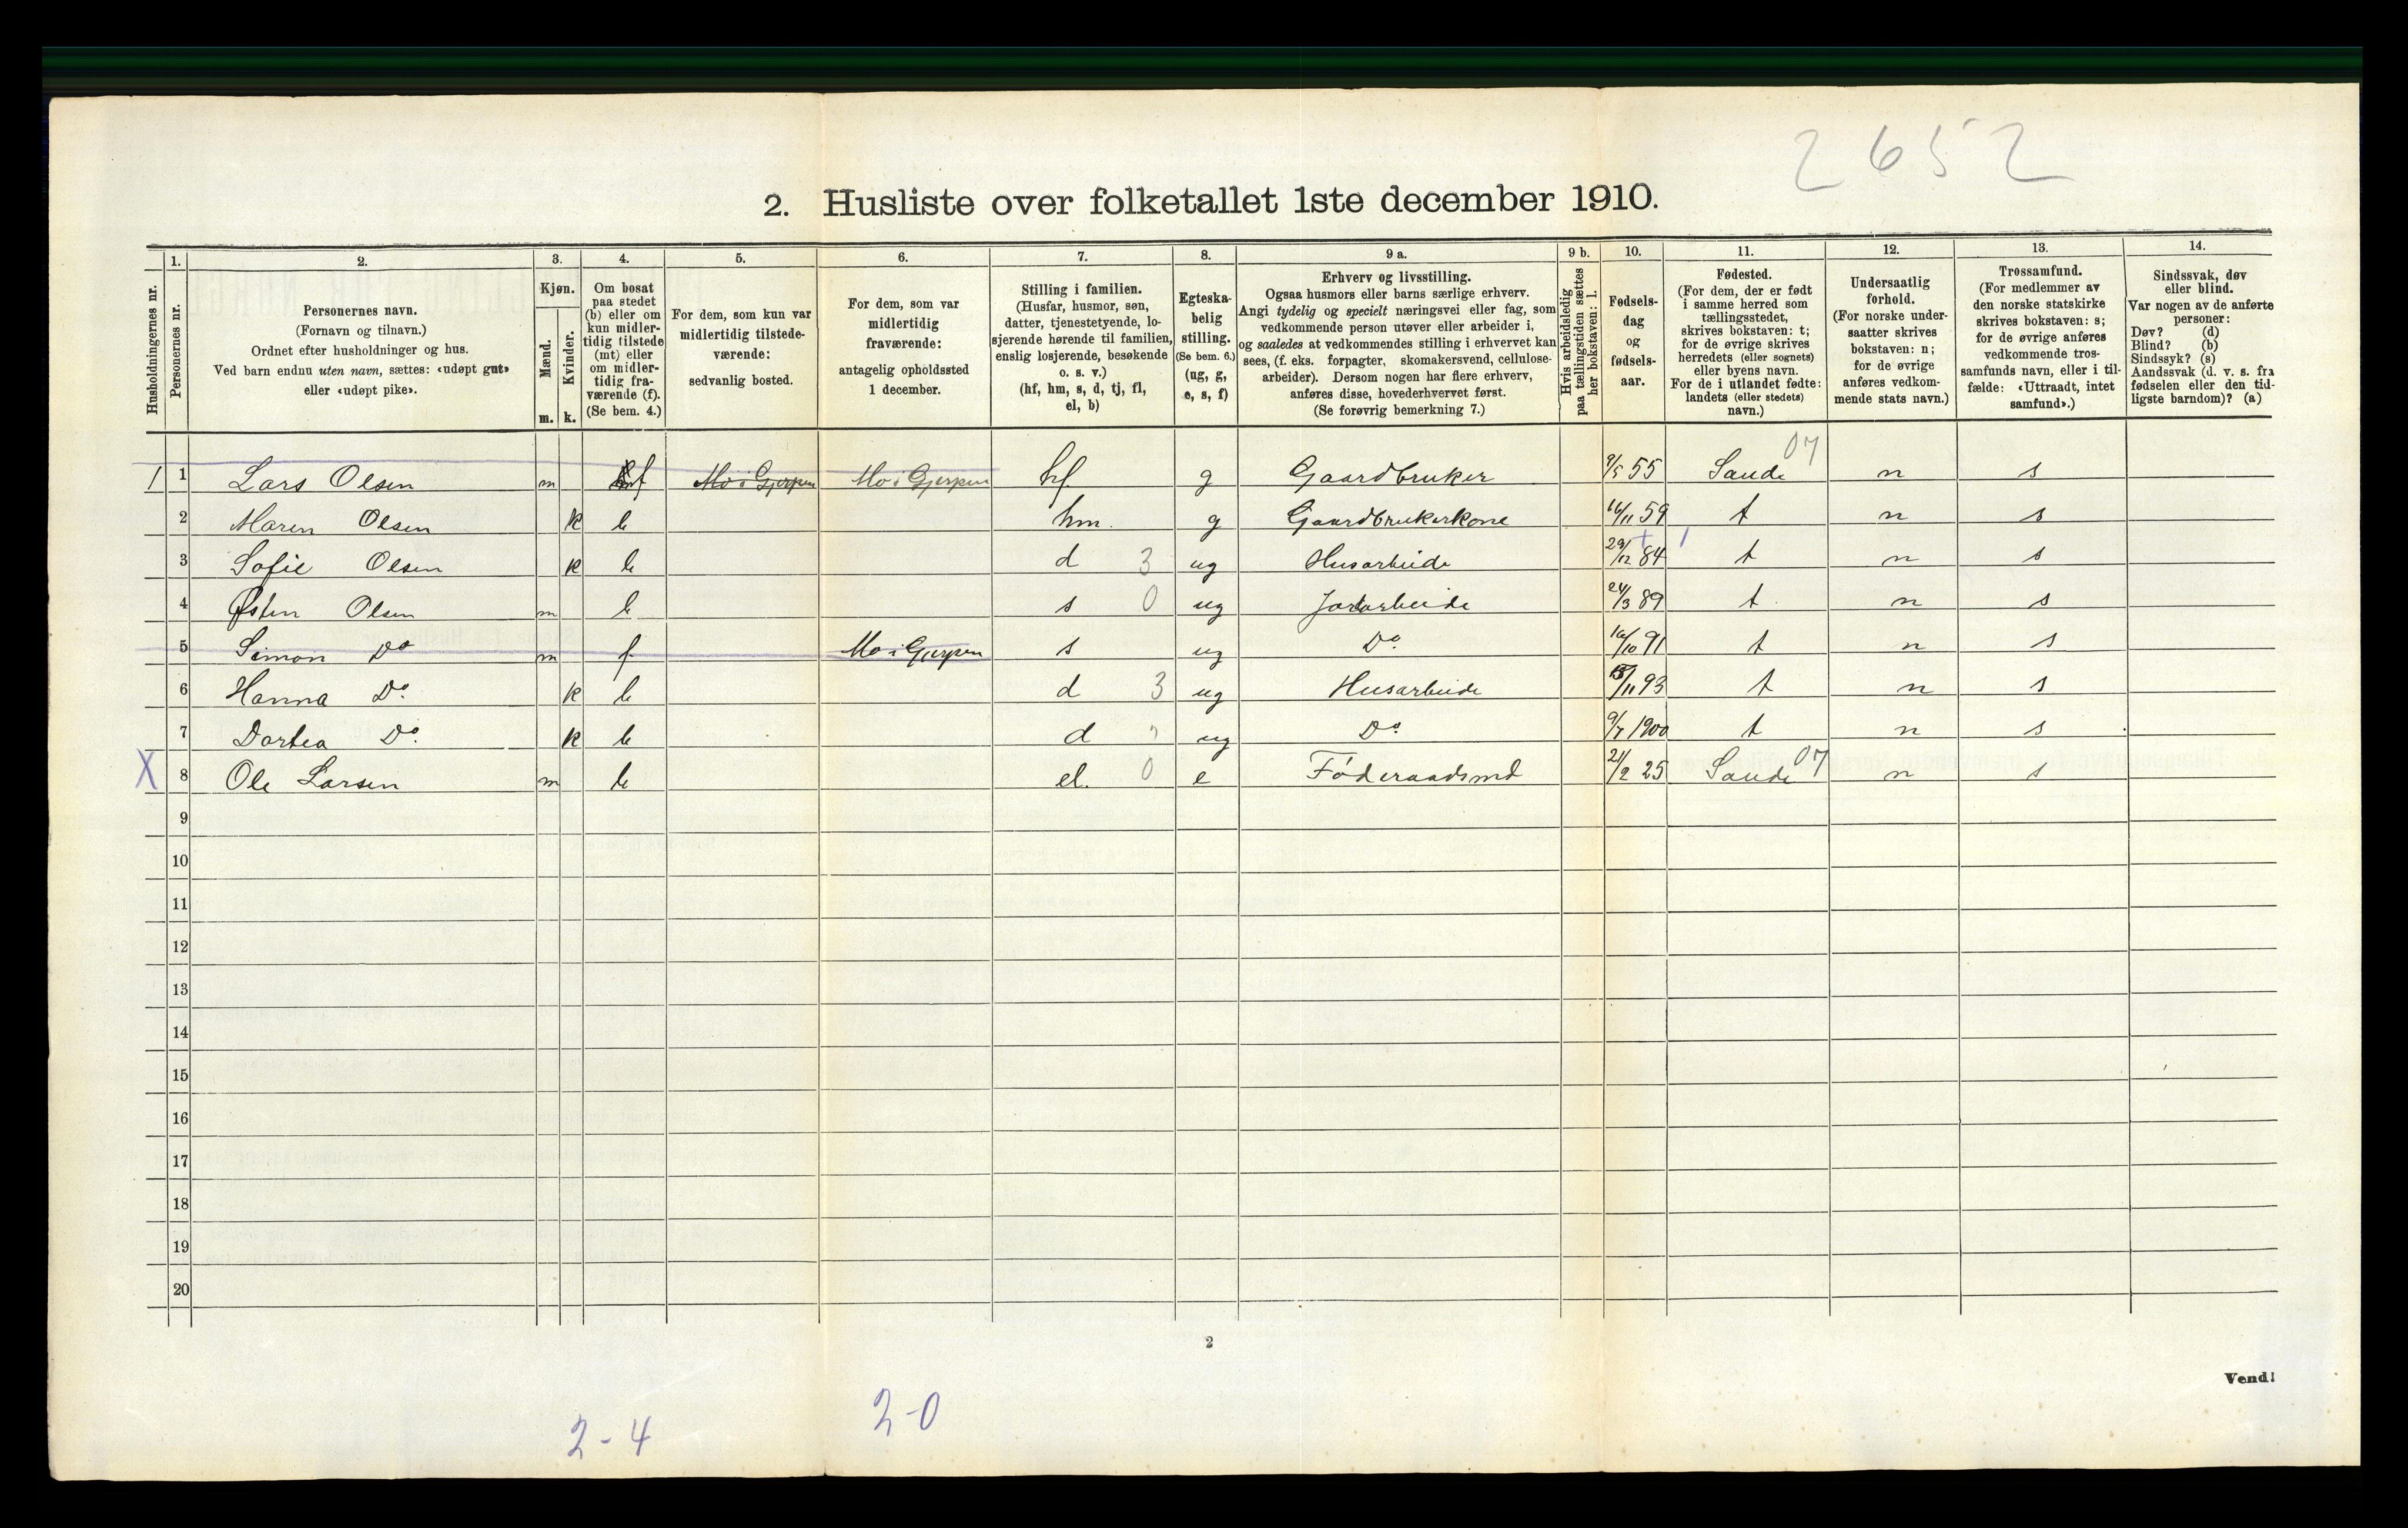 2652
2. Husliste over folketallet 1ste december 1910.
Husholdningernes nr.
1.
Personernes nr.
2.
Personernes navn.
(Fornavn og tilnavn.)
Ordnet efter husholdninger og hus.
Ved barn endnu uten navn, sættes: «udøpt gut»
eller «udøpt pike».
3.
Kjøn.
Mænd.
Kvinder.
m. k.
4.
Om bosat
paa stedet
(b) eller om
kun midler-
tidig tilstede
(mt) eller
om midler-
tidig fra-
værende (f).
(Se bem. 4.)
5.
For dem, som kun var
midlertidig tilstede-
værende:
sedvanlig bosted.
6.
For dem, som var
midlertidig
fraværende:
antagelig opholdssted
1 december.
7.
Stilling i familien.
(Husfar, husmor, søn,
datter, tjenestetyende, lo-
sjerende hørende til familien,
enslig losjerende, besøkende
o. s. v.)
(hf, hm, s, d, tj, fl,
el, b)
8.
Egteska-
belig
stilling.
(Se bem. 6.)
(ug, g,
e, s, f)
9 a.
Erhverv og livsstilling.
Ogsaa husmors eller barns særlige erhverv.
Angi tydelig og specielt næringsvei eller fag, som
vedkommende person utøver eller arbeider i,
og saaledes at vedkommendes stilling i erhvervet kan
sees, (f. eks. forpagter, skomakersvend, cellulose-
arbeider). Dersom nogen har flere erhverv,
anføres disse, hovederhvervet først.
(Se forøvrig bemerkning 7.)
9 b.
Hvis arbeidsledig
paa tællingstiden sættes
her bokstaven: l.
10.
Fødsels-
dag
og
fødsels-
aar.
11.
Fødested.
(For dem, der er født
i samme herred som
tællingsstedet,
skrives bokstaven: t;
for de øvrige skrives
herredets (eller sognets)
eller byens navn.
For de i utlandet fødte:
landets (eller stedets)
navn.)
12.
Undersaatlig
forhold.
(For norske under-
saatter skrives
bokstaven: n;
for de øvrige
anføres vedkom-
mende stats navn.)
13.
Trossamfund.
(For medlemmer av
den norske statskirke
skrives bokstaven: s;
for de øvrige anføres
vedkommende tros-
samfunds navn, eller i til-
fælde: «Uttraadt, intet
samfund».)
14.
Sindssvak, døv
eller blind.
Var nogen av de anførte
personer:
Døv? (d)
Blind? (b)
Sindssyk? (s)
Aandssvak (d. v. s. fra
fødselen eller den tid-
ligste barndom)? (a)
1 1 Lars Olsen m f Mo i Gjerpen Mo i Gjerpen hf g Gaardbruker 9/5 55 Sande 07 n s
2 Maren Olsen k b hm. g Gaardbrukerkone 16/11 59 t n s
3 Sofie Olsen k b d 3 ug Husarbeide 29/12 84 t n s
4 Østen Olsen m b s 0 ug Jordarbeide 24/3 89 t n s
5 Simon Do m f Mo i Gjerpen s ug Do 16/10 91 t n s
6 Hanna Do k b d 3 ug Husarbeide /11 93 t n s
7 Dortea Do k b d ug Do 9/7 1900 t n s
X 8 Ole Larsen m b el. 0 e Føderaadsmd 21/2 25 Sande 07 n s
9
10
11
12
13
14
15
16
17
18
19
20
2
Vend!
2-4
2-0